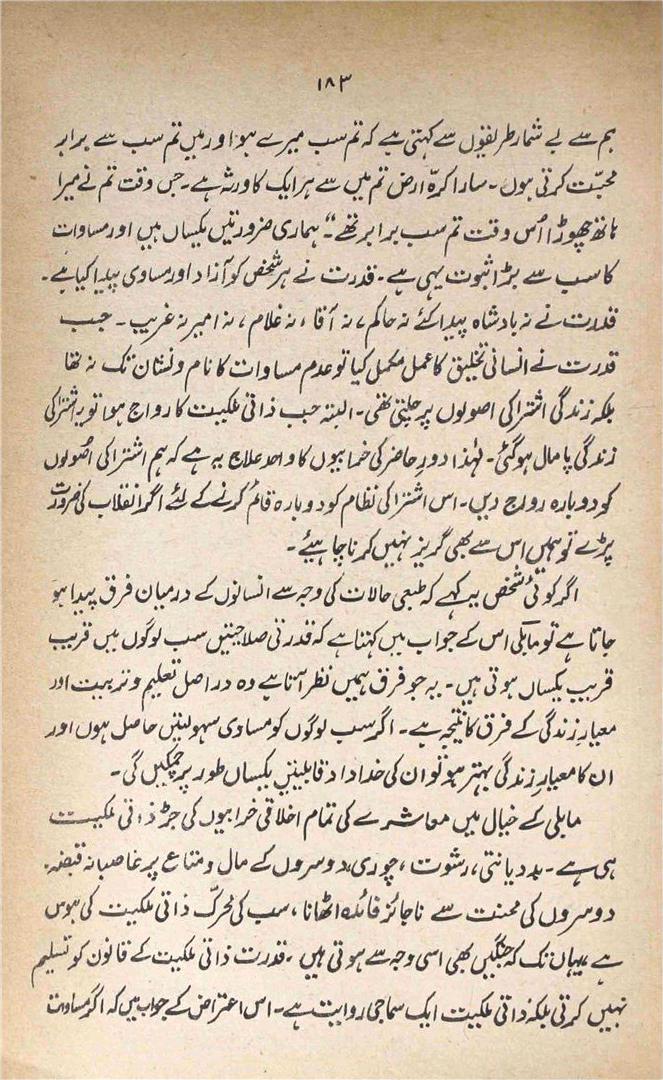 ۱۸۳
ہم سے بے شمار طریقوں سے کہتی ہے کہ تم سب میرے ہو اور میں تم سب سے برابر
محبّت کرتی ہوں۔ سارا کرۂ ارض تم میں سے ہر ایک کا ورثہ ہے۔ جس وقت تم نے میرا
ہاتھ چھوڑا اُس وقت تم سب برابر تھے“۔ ہماری ضرورتیں یکساں ہیں اور مساوات
کا سب سے بڑا ثبوت یہی ہے۔ قدرت نے ہر شخص کو آزاد اور مساوی پیدا کیا ہے۔
قدرت نے نہ بادشاہ پیدا کئے نہ حاکم، نہ آقا، نہ غلام، نہ امیر نہ غریب۔ جب
قدرت نے انسانی تخلیق کا عمل مکمل کیا تو عدم مساوات کا نام و نشان تک نہ تھا
بلکہ زندگی اشتراکی اصولوں پر چلتی تھی۔ البتہ جب ذاتی ملکیت کا رواج ہوا تو یہ اشتراکی
زندگی پامال ہو گئی۔ لہٰذا دورِ حاضر کی خرابیوں کا واحد علاج یہ ہے کہ ہم اشتراکی اصُولوں
کو دوبارہ رواج دیں۔ اس اشتراکی نظام کو دوبارہ قائم کرنے کے لئے اگر انقلاب کی ضرورت
پڑے تو ہمیں اس سے بھی گریز نہیں کرنا چاہیئے۔
اگر کوئی شخص یہ کہے کہ طبعی حالات کی وجہ سے انسانوں کے درمیان فرق پیدا ہو
جاتا ہے تو مابلی اس کے جواب میں کہتا ہے کہ قدرتی صلاحیتیں سب لوگوں میں قریب
قریب یکساں ہوتی ہیں۔ یہ جو فرق ہمیں نظر آتا ہے وہ در اصل تعلیم و تربیت اور
معیارِ زندگی کے فرق کا نتیجہ ہے۔ اگر سب لوگوں کو مساوی سہولتیں حاصل ہوں اور
ان کا معیارِ زندگی بہتر ہو تو ان کی خداداد قابلیتیں یکساں طور پر چمکیں گی۔
مابلی کے خیال میں معاشرے کی تمام اخلاقی خرابیوں کی جڑ ذاتی ملکیت
ہی ہے۔ بددیانتی، رشوت، چوری، دوسروں کے مال و متاع پر غاصبانہ قبضہ،
دوسروں کی محنت سے ناجائز فائدہ اٹھانا، سب کی محرّک ذاتی ملکیت کی ہوس
ہے یہاں تک کہ جنگیں بھی اسی وجہ سے ہوتی ہیں۔ قدرت ذاتی ملکیت کے قانون کو تسلیم
نہیں کرتی بلکہ ذاتی ملکیت ایک سماجی روایت ہے۔ اس اعتراض کے جواب میں کہ اگر مساوات